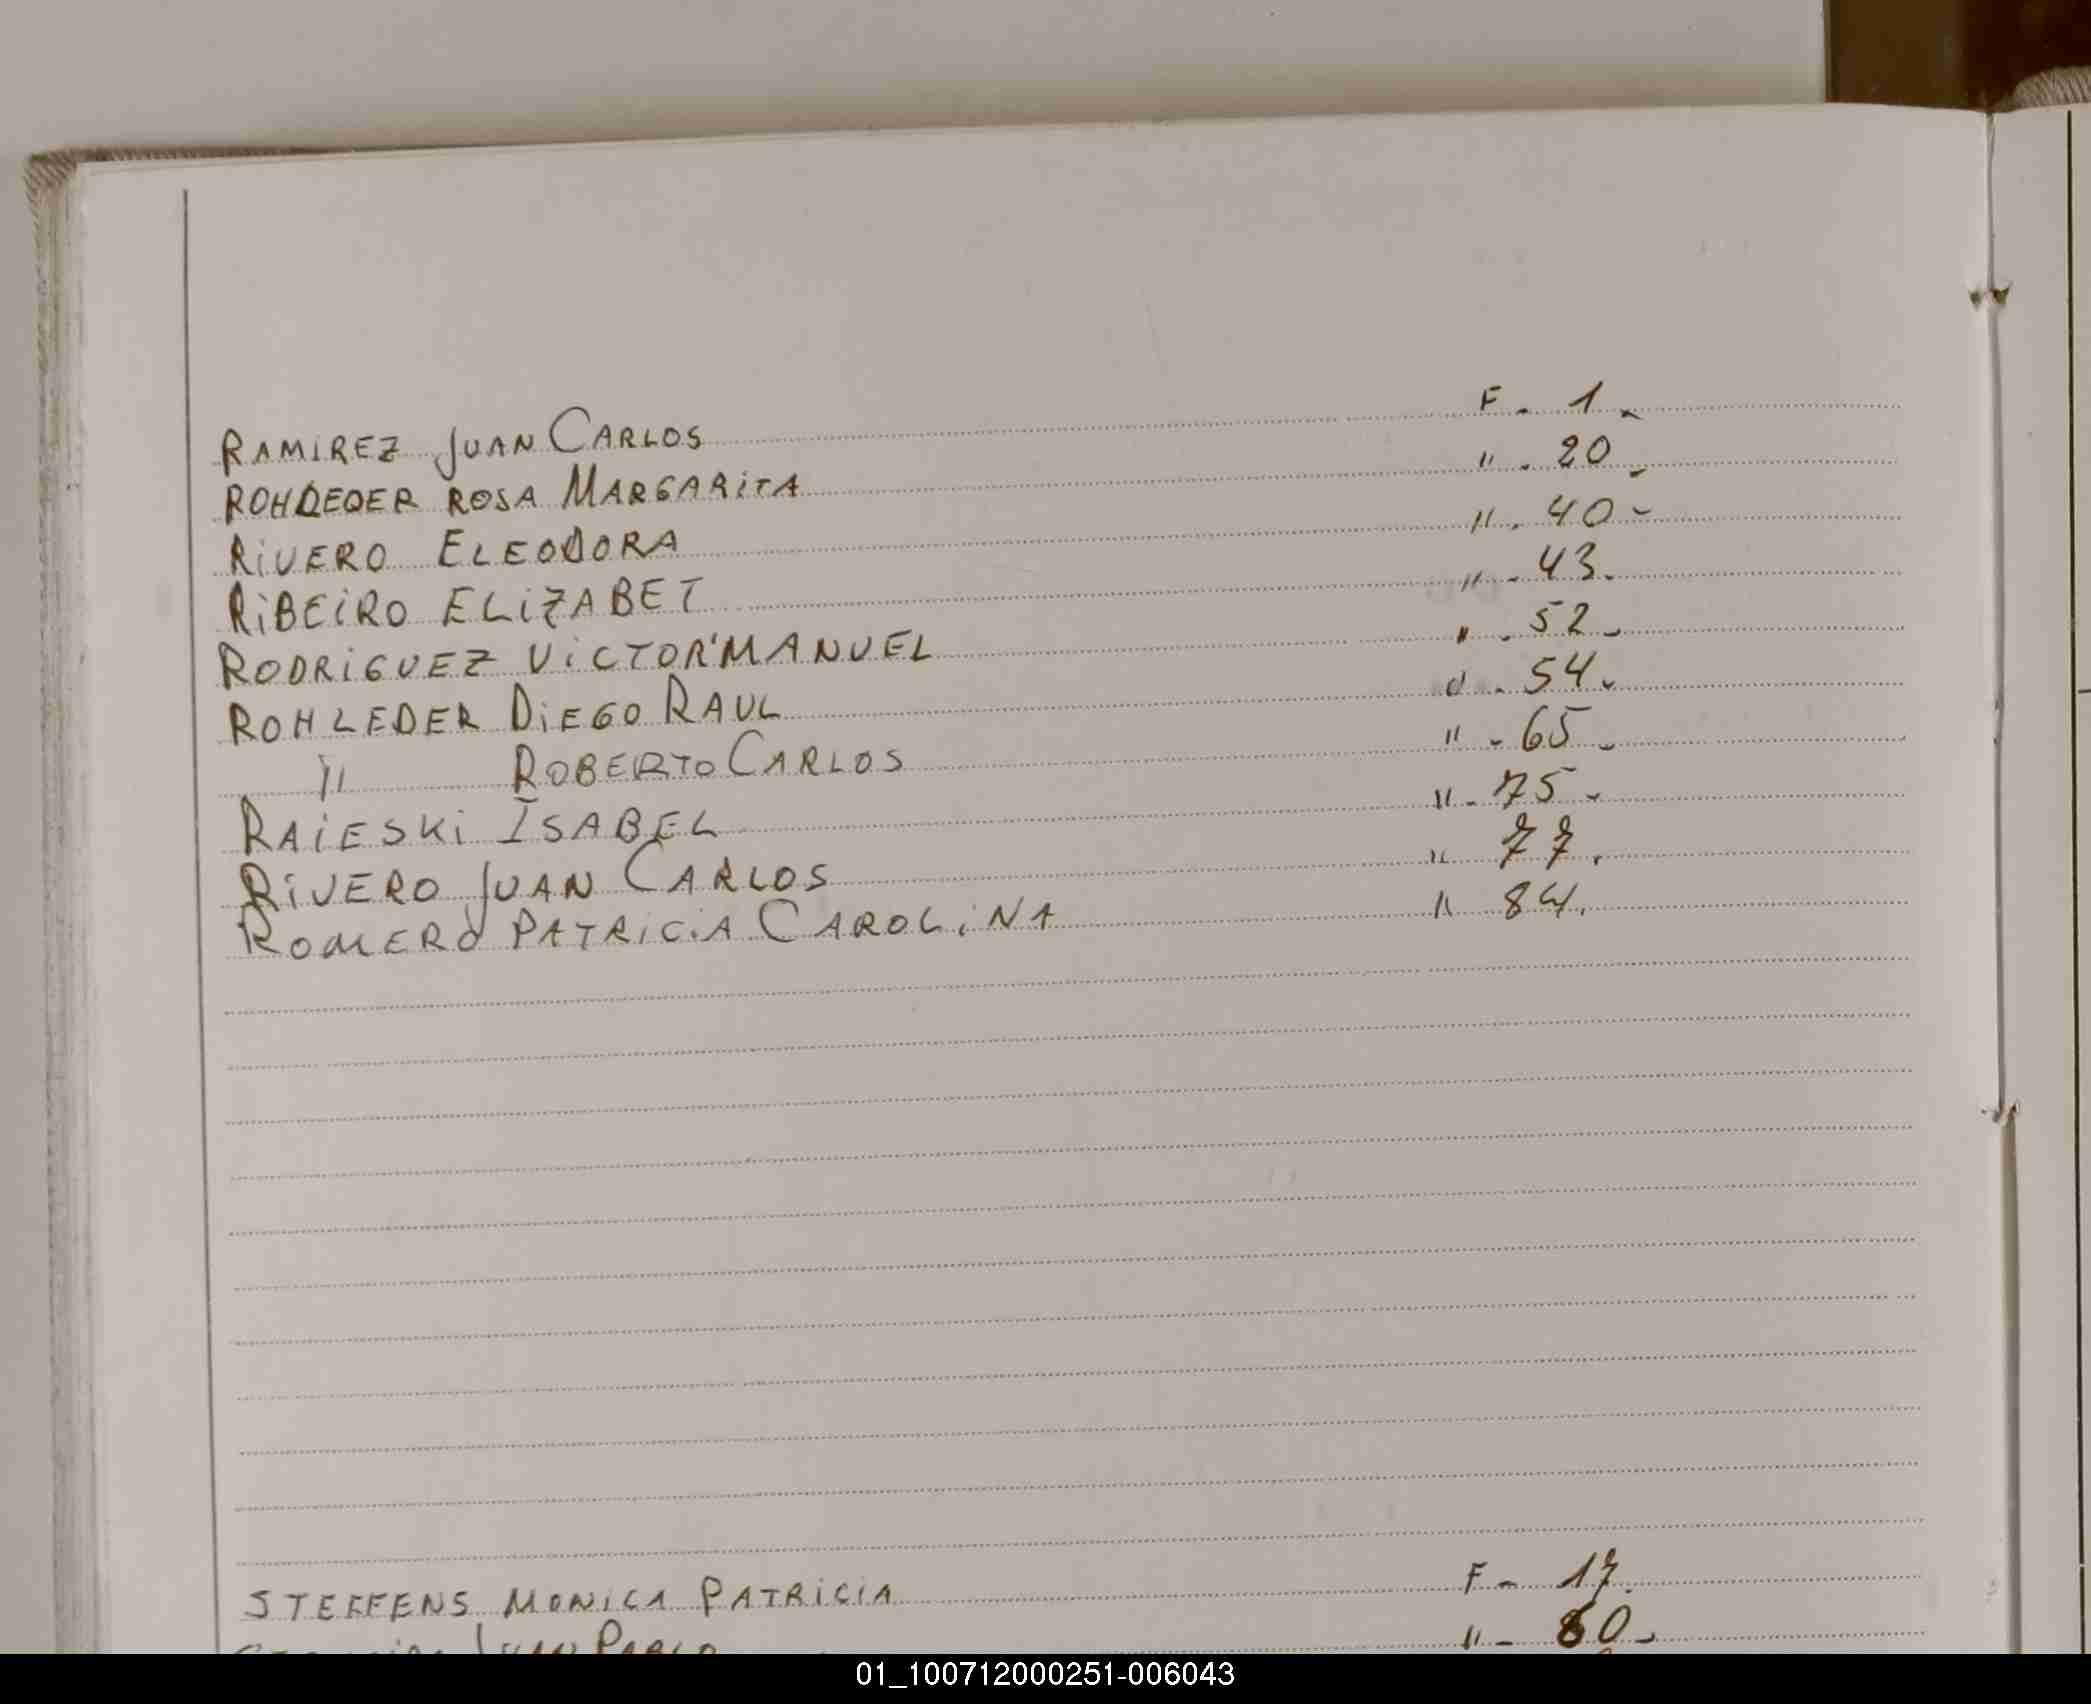 RAMIREZ JUAN CARLOS F. 1.
ROHDEDER ROSA MARGARITA ". 20.
RIVERO ELEODORA ". 40-
RIBEIRO ELIZABET ". 43.
RODRIGUEZ VICTOR MANUEL ". 52.
ROHLEDER DIEGO RAUL ". 54.
" ROBERTO CARLOS ". 65.
RAIESKI ISABEL ". 75.
RIVERO JUAN CARLOS " 77.
ROMERO PATRICIA CAROLINA " 84.
STEFFENS MONICA PATRICIA F- 17.
JUAN PABLO "- 60-
01_100712000251-006043